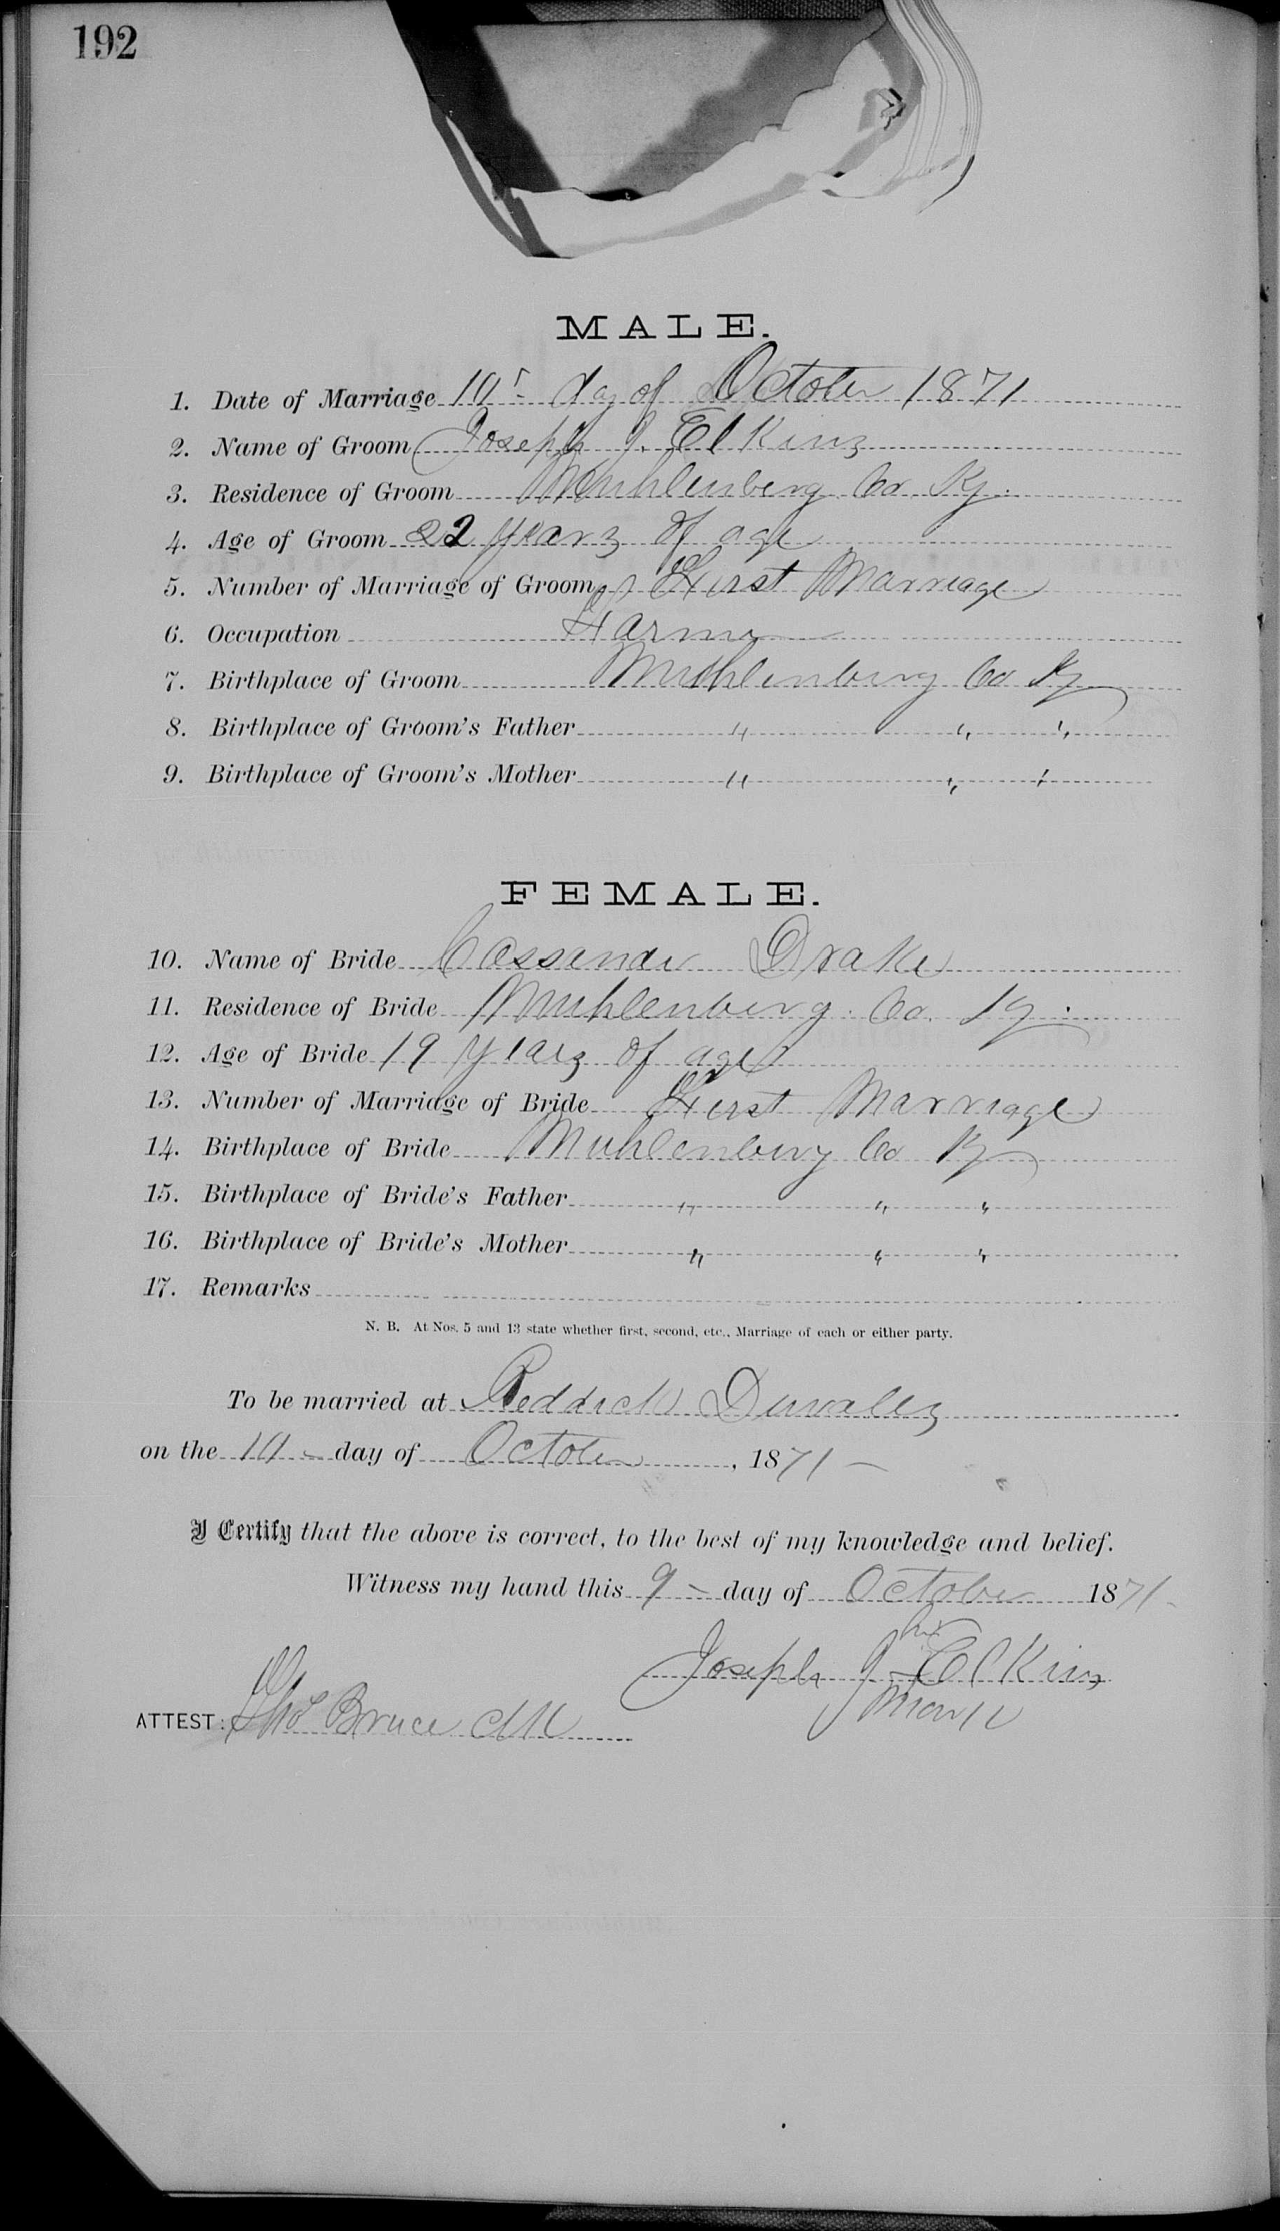 192
MALE.
1. Date of Marriage 10th day of October 1871
2. Name of Groom Joseph J. Elkins
3. Residence of Groom Muhlenberg Co Ky.
4. Age of Groom 22 years of age
5. Number of Marriage of Groom First Marriage
6. Occupation Farmer
7. Birthplace of Groom Muhlenberg Co Ky
8. Birthplace of Groom's Father " " "
9. Birthplace of Groom's Mother " " "
FEMALE.
10. Name of Bride Cassander Drake
11. Residence of Bride Muhlenberg. Co. Ky.
12. Age of Bride 19 years of age
13. Number of Marriage of Bride First Marriage
14. Birthplace of Bride Muhlenberg Co Ky
15. Birthplace of Bride's Father " " "
16. Birthplace of Bride's Mother " " "
17. Remarks
N. B. At Nos. 5 and 13 state whether first, second, etc., Marriage of each or either party.
To be married at Reddick Duvalls
on the 10 - day of October, 1871 -
I Certify that the above is correct, to the best of my knowledge and belief.
Witness my hand this 9 - day of October 1871 -
his
Joseph J. Elkins
Mark
ATTEST: Tho Bruce